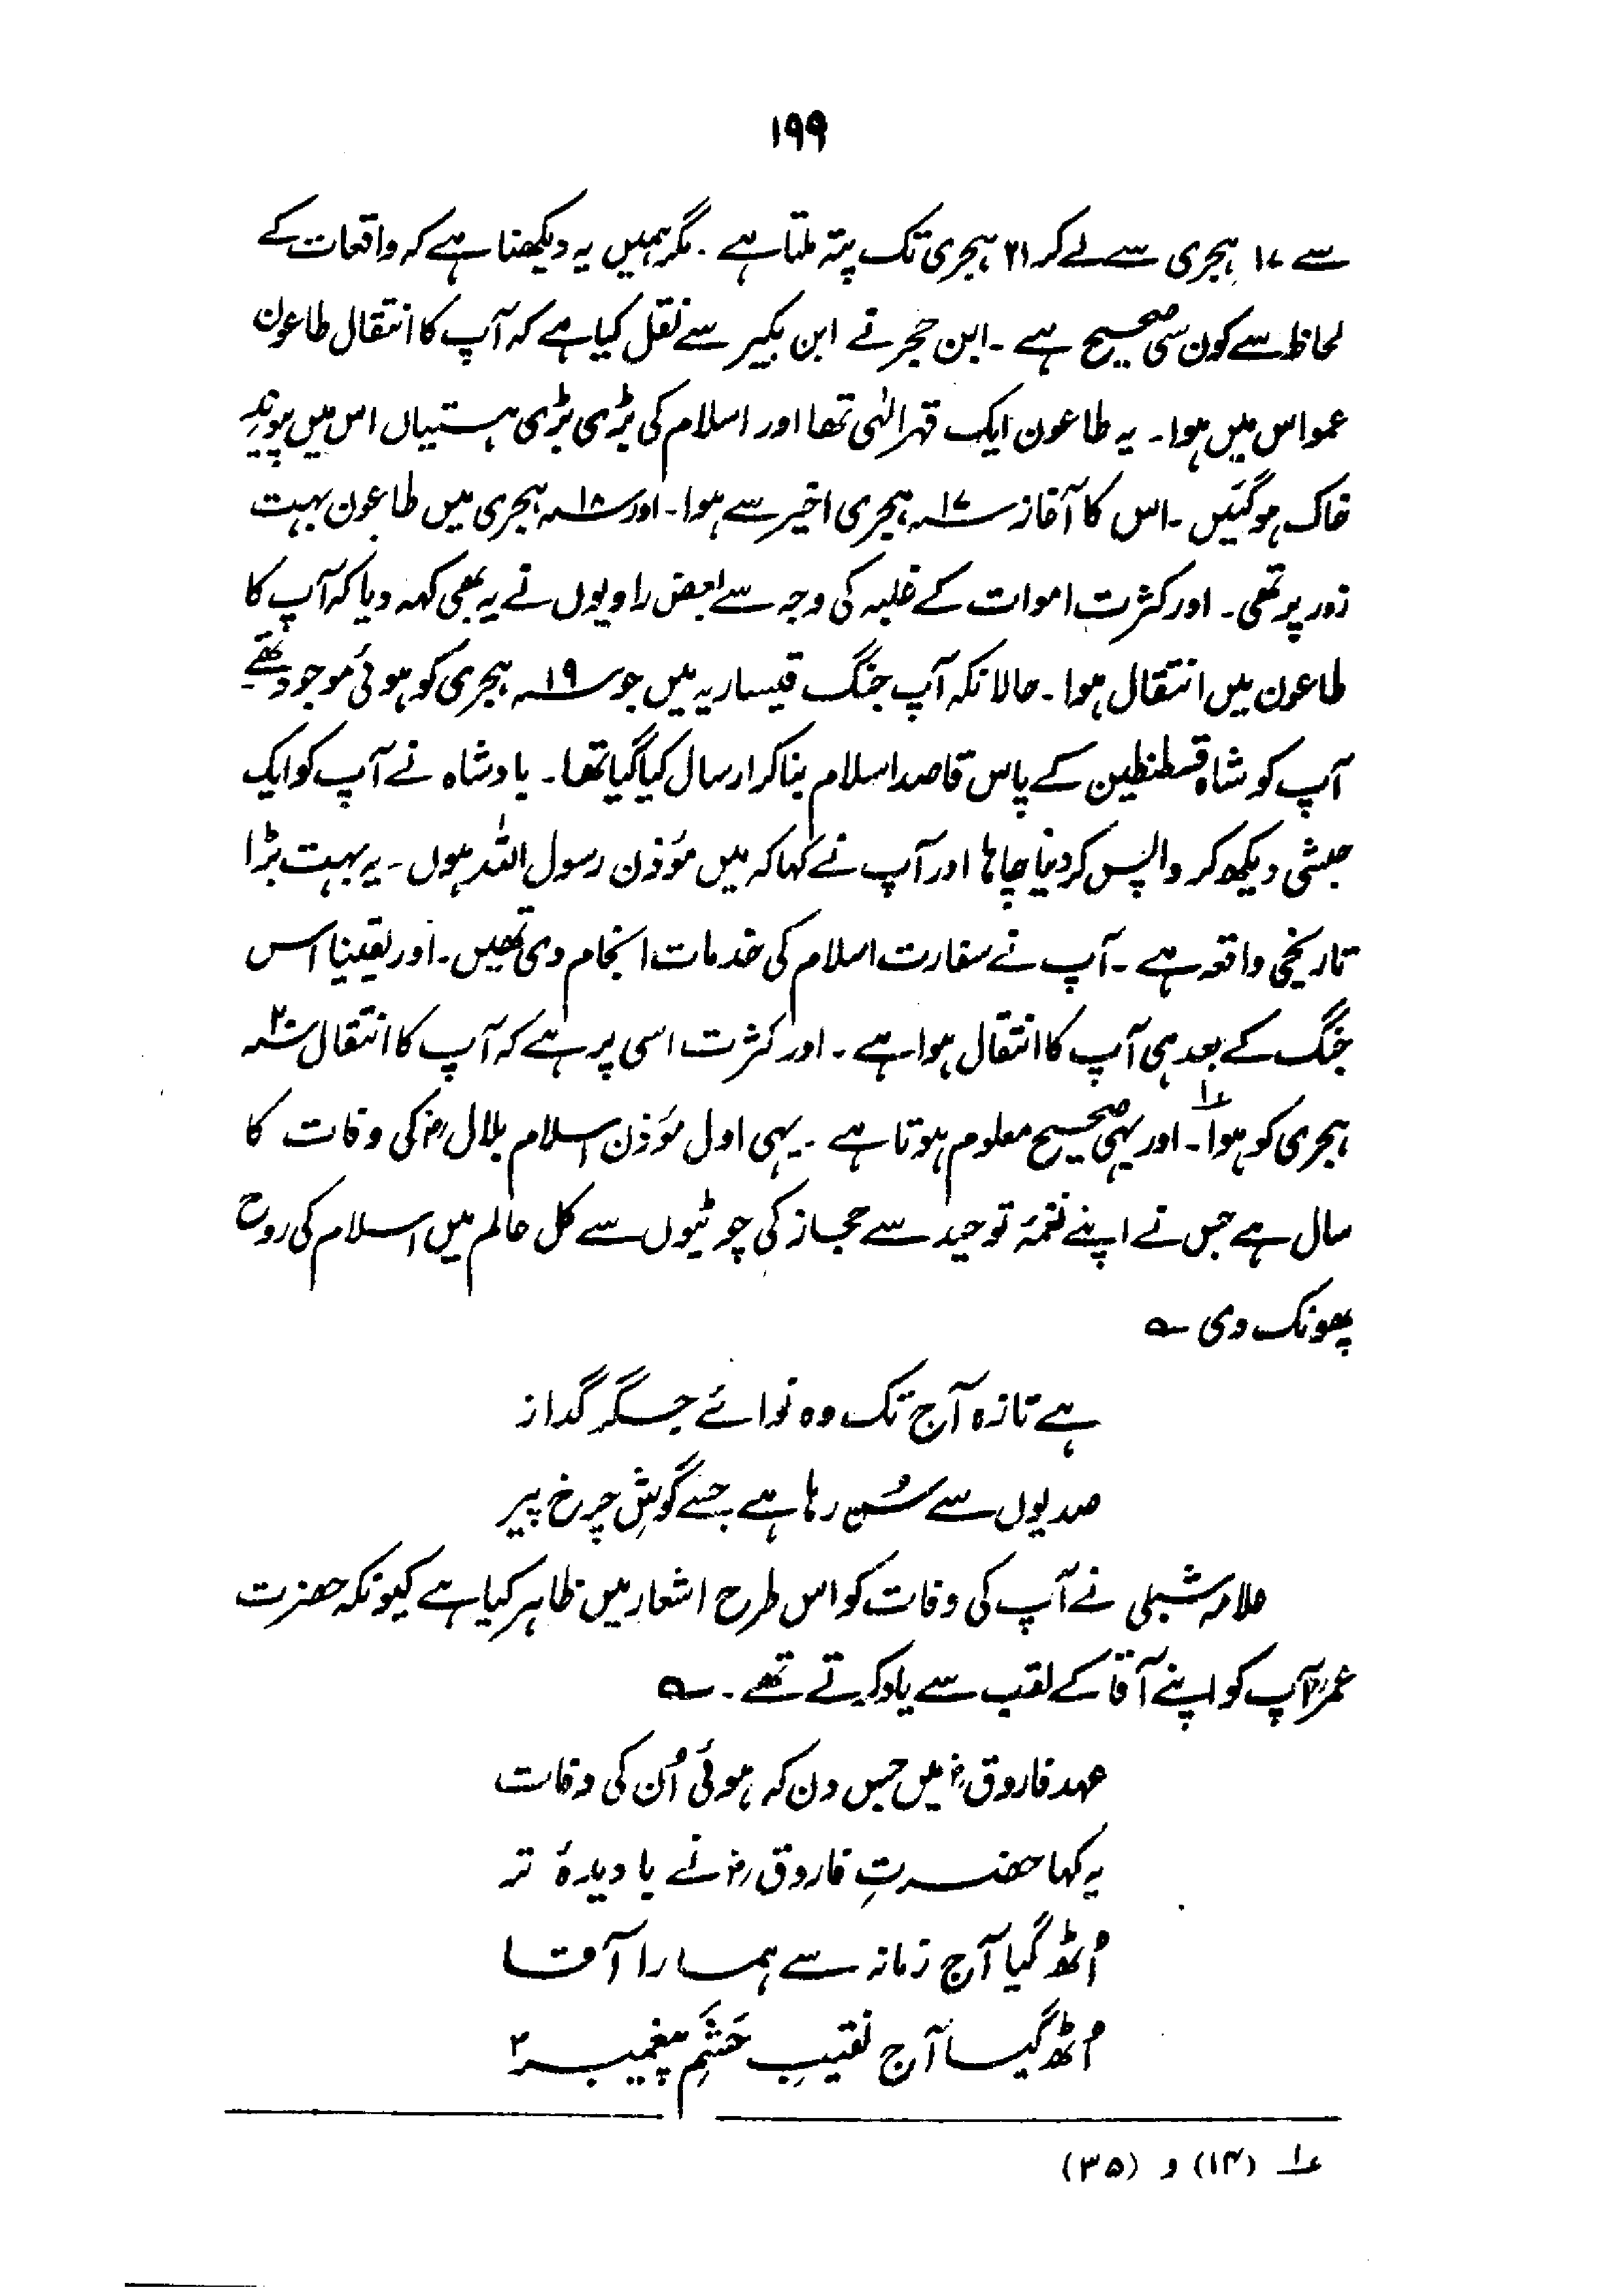 ۱۹۹
سے ۱۷ ہجری سے لے کر ۲۱ ہجری تک پتہ ملتا ہے ۔ مگر ہمیں یہ دیکھنا ہے کہ واقعات کے
لحاظ سے کون سی صحیح ہے ۔ ابن حجر نے ابن بکیر سے نقل کیا ہے کہ آپ کا انتقال طاعون
عمواس میں ہوا ۔ یہ طاعون ایک قہر الٰہی تھا اور اسلام کی بڑی بڑی ہستیاں اس میں پیوندِ
خاک ہو گئیں ۔ اس کا آغاز ۱۷؁ ہجری اخیر سے ہوا ۔ اور ۱۸؁ ہجری میں طاعون بہت
زور پر تھی ۔ اور کثرت اموات کے غلبہ کی وجہ سے بعض راویوں نے یہ بھی کہہ دیا کہ آپ کا
طاعون میں انتقال ہوا ۔ حالانکہ آپ جنگ قیساریہ میں جو ۱۹؁ ہجری کو ہوئی موجود تھے ۔
آپ کو شاہ قسطنطین کے پاس قاصد اسلام بنا کر ارسال کیا گیا تھا ۔ بادشاہ نے آپ کو ایک
حبشی دیکھ کر واپس کر دینا چاہا اور آپ نے کہا کہ میں مؤذن رسول اللہ ہوں ۔ یہ بہت بڑا
تاریخی واقعہ ہے ۔ آپ نے سفارت اسلام کی خدمات انجام دی تھیں ۔ اور یقینا اس
جنگ کے بعد ہی آپ کا انتقال ہوا ہے ۔ اور کثرت اسی پر ہے کہ آپ کا انتقال ۲۰؁
ہجری کو ہوا ؏۱ ۔ اور یہی صحیح معلوم ہوتا ہے ۔ یہی اول مؤذن اسلام بلال رضؓ کی وفات کا
سال ہے جس نے اپنے نغمۂ توحید سے حجاز کی چوٹیوں سے کل عالم میں اسلام کی روح
پھونک دی ؎
ہے تازہ آج تک وہ نوائے جگر گداز
صدیوں سے سُن رہا ہے جسے گوشِ چرخ پیر
علامہ شبلی نے آپ کی وفات کو اس طرح اشعار میں ظاہر کیا ہے کیونکہ حضرت
عمرؓ آپ کو اپنے آقا کے لقب سے یاد کرتے تھے ۔ ؎
عہد فاروقؓ میں جس دن کہ ہوئی اُن کی وفات
یہ کہا حضرتِ فاروقؓ نے با دیدۂ تر
اُٹھ گیا آج زمانہ سے ہمارا آقا
اُٹھ گیا آج نقیبِ حَشَمِ پیغمبر ۲
؏۱ (۱۴) و (۳۵)